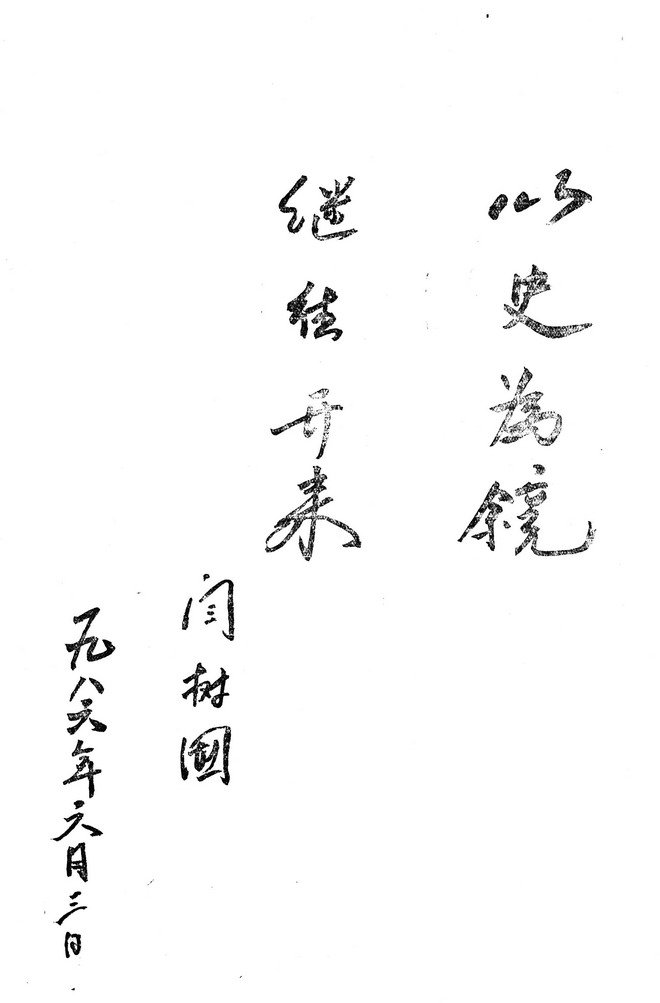 以史為鏡
继往开来
闫树國
一九八六年六月三日